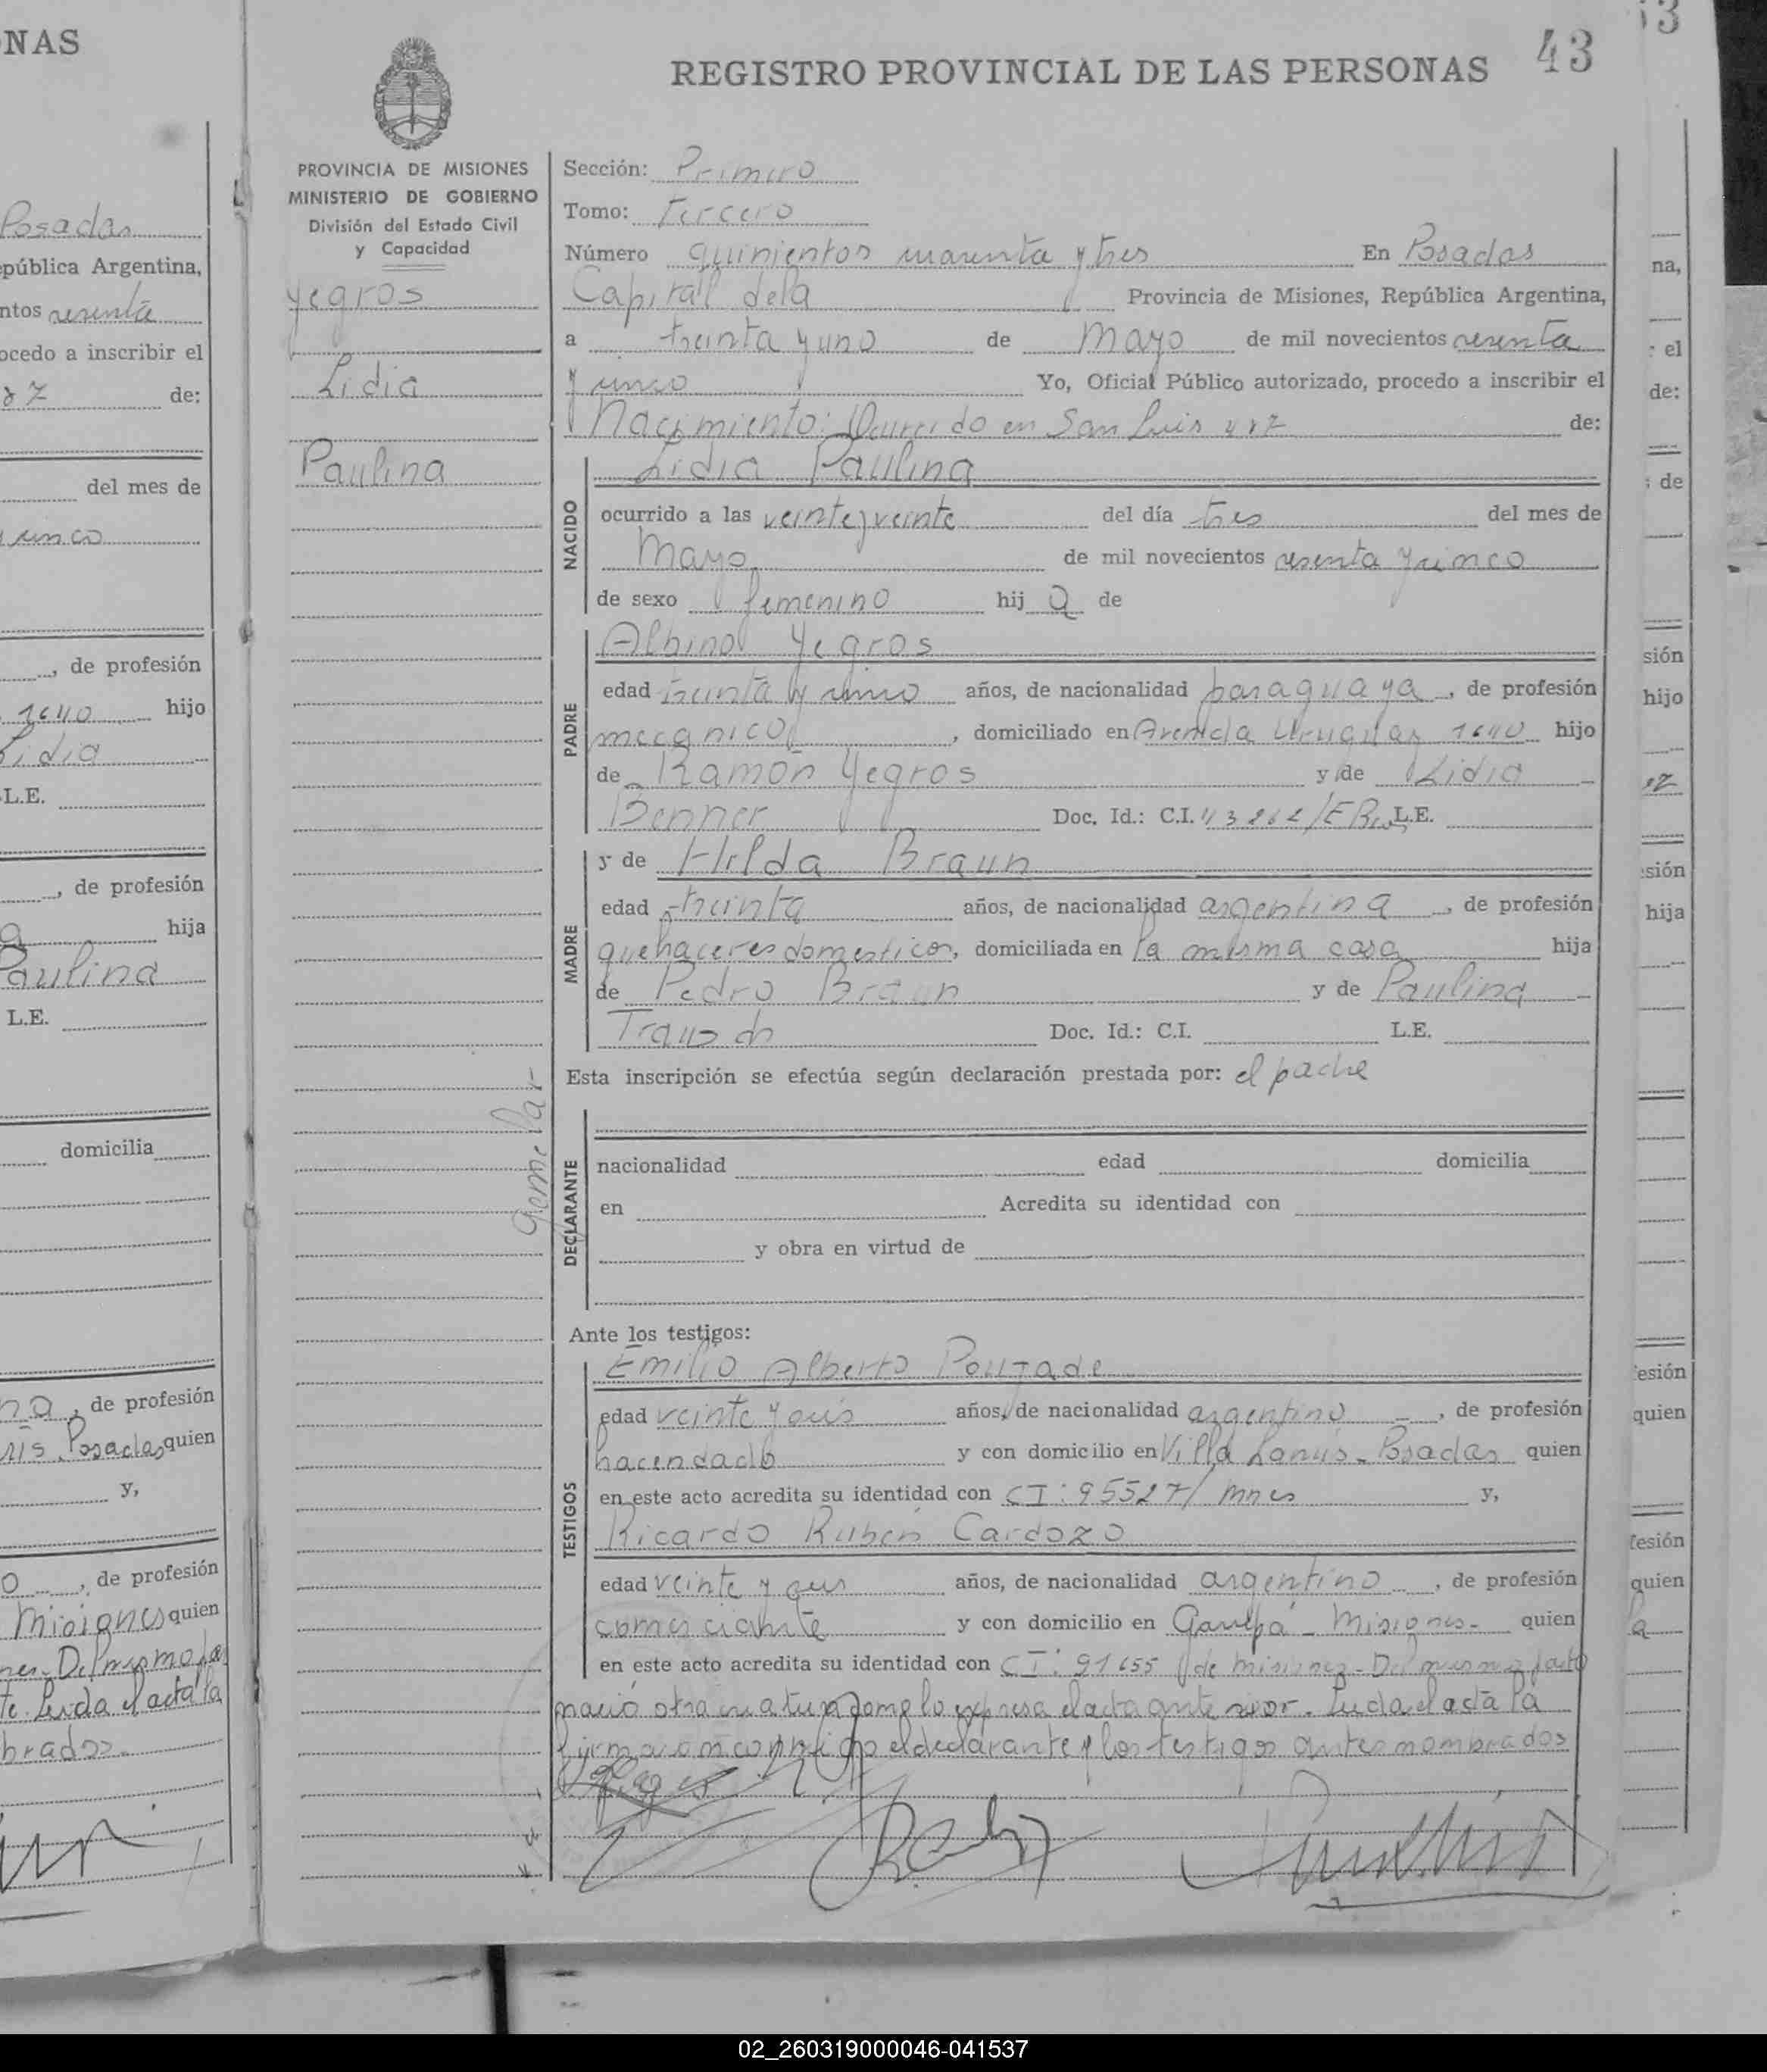 NAS
Posadas
epública Argentina,
ntos sesenta
ocedo a inscribir el
de:
del mes de
y cinco
de profesión
1640 hijo
Lidia
L.E.
, de profesión
hija
Paulina
L.E.
domicilia
na, de profesión
Posadas quien
y,
o, de profesión
Misiones quien
Del mismo
te. Leida el acta la
brados.
43
REGISTRO PROVINCIAL DE LAS PERSONAS
PROVINCIA DE MISIONES
MINISTERIO DE GOBIERNO
División del Estado Civil
y Capacidad
Yegros
Lidia
Paulina
Gemelar
Sección: Primero
Tomo: Tercero
Número quinientos cuarenta y tres En Posadas
Capital de la Provincia de Misiones, República Argentina,
a treinta y uno de Mayo de mil novecientos sesenta
y cinco Yo, Oficial Público autorizado, procedo a inscribir el
Nacimiento: Ocurrido en San Luis de:
Lidia Paulina
NACIDO
ocurrido a las veinte y veinte del día tres del mes de
Mayo de mil novecientos sesenta y cinco
de sexo femenino hij a de
PADRE
Albino Yegros
edad treinta y cinco años, de nacionalidad paraguaya, de profesión
mecanico, domiciliado en Avenida Uruguay 1640 hijo
de Ramón Yegros y de Lidia
Benner Doc. Id.: C.I. L.E.
MADRE
y de Hilda Braun
edad treinta años, de nacionalidad argentina, de profesión
quehaceres domesticos, domiciliada en la misma casa hija
de Pedro Braun y de Paulina
Doc. Id.: C.I. L.E.
Esta inscripción se efectúa según declaración prestada por: el padre
DECLARANTE
nacionalidad edad domicilia
en Acredita su identidad con
y obra en virtud de
Ante los testigos:
TESTIGOS
Emilio Alberto
edad veinte y seis años, de nacionalidad argentino -, de profesión
hacendado y con domicilio en Villa Lanús - Posadas quien
en este acto acredita su identidad con CI: 95527/ Mnes y,
Ricardo Ruben Cardozo
edad veinte y seis años, de nacionalidad argentino, de profesión
comerciante y con domicilio en Garupá - Misiones - quien
en este acto acredita su identidad con CI: 91655 de Misiones - Del mismo parto
nació otra criatura como lo expresa el acta anterior. Leida el acta la
firmaron conmigo el declarante y los testigos antes nombrados
na,
el
de:
de
sión
hijo
sión
hija
esión
quien
fesión
quien
02_260319000046-041537